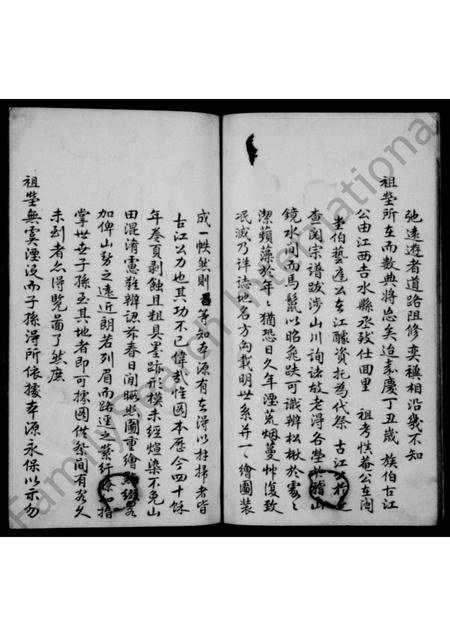 弛遠遊者道路阻修奕穓相沿幾不知
祖塋所在而數典將忘矣迨嘉慶丁丑歲 族伯古江
公由江西吉水縣丞致仕回里 祖考性菴公在閩
坐伯藝 公在江釀資托為代祭 古江公於是
查閱宗譜跋涉山川詢諸故老得各塋於稽山
鏡水間而馬鬣以昭兆趺可識辦松楸於雾
潔蘋藻於年年猶恐日久年湮荒烟蔓艸復致
泯滅乃詳誌地名方向載明世系并一一繪圖裝
成一帙然則 等知本源有在得以拄掃者皆
古江公力也其功不已偉哉惟圖本歷今四十餘
年卷頁剥蝕且粗具墨跡形模未經煊染不免山
田混淆憲難辦認茲春日閒暇照圖重繪點綴畧
加俾山勢之遠近朗若列眉而路逕之縈紆 指
掌世世子孫至其地者即可據圖 間有名久
未到者亦得覽面了然庶
祖塋無虞湮没而子孫得所依據本源永保以示勿
FamilySearch International